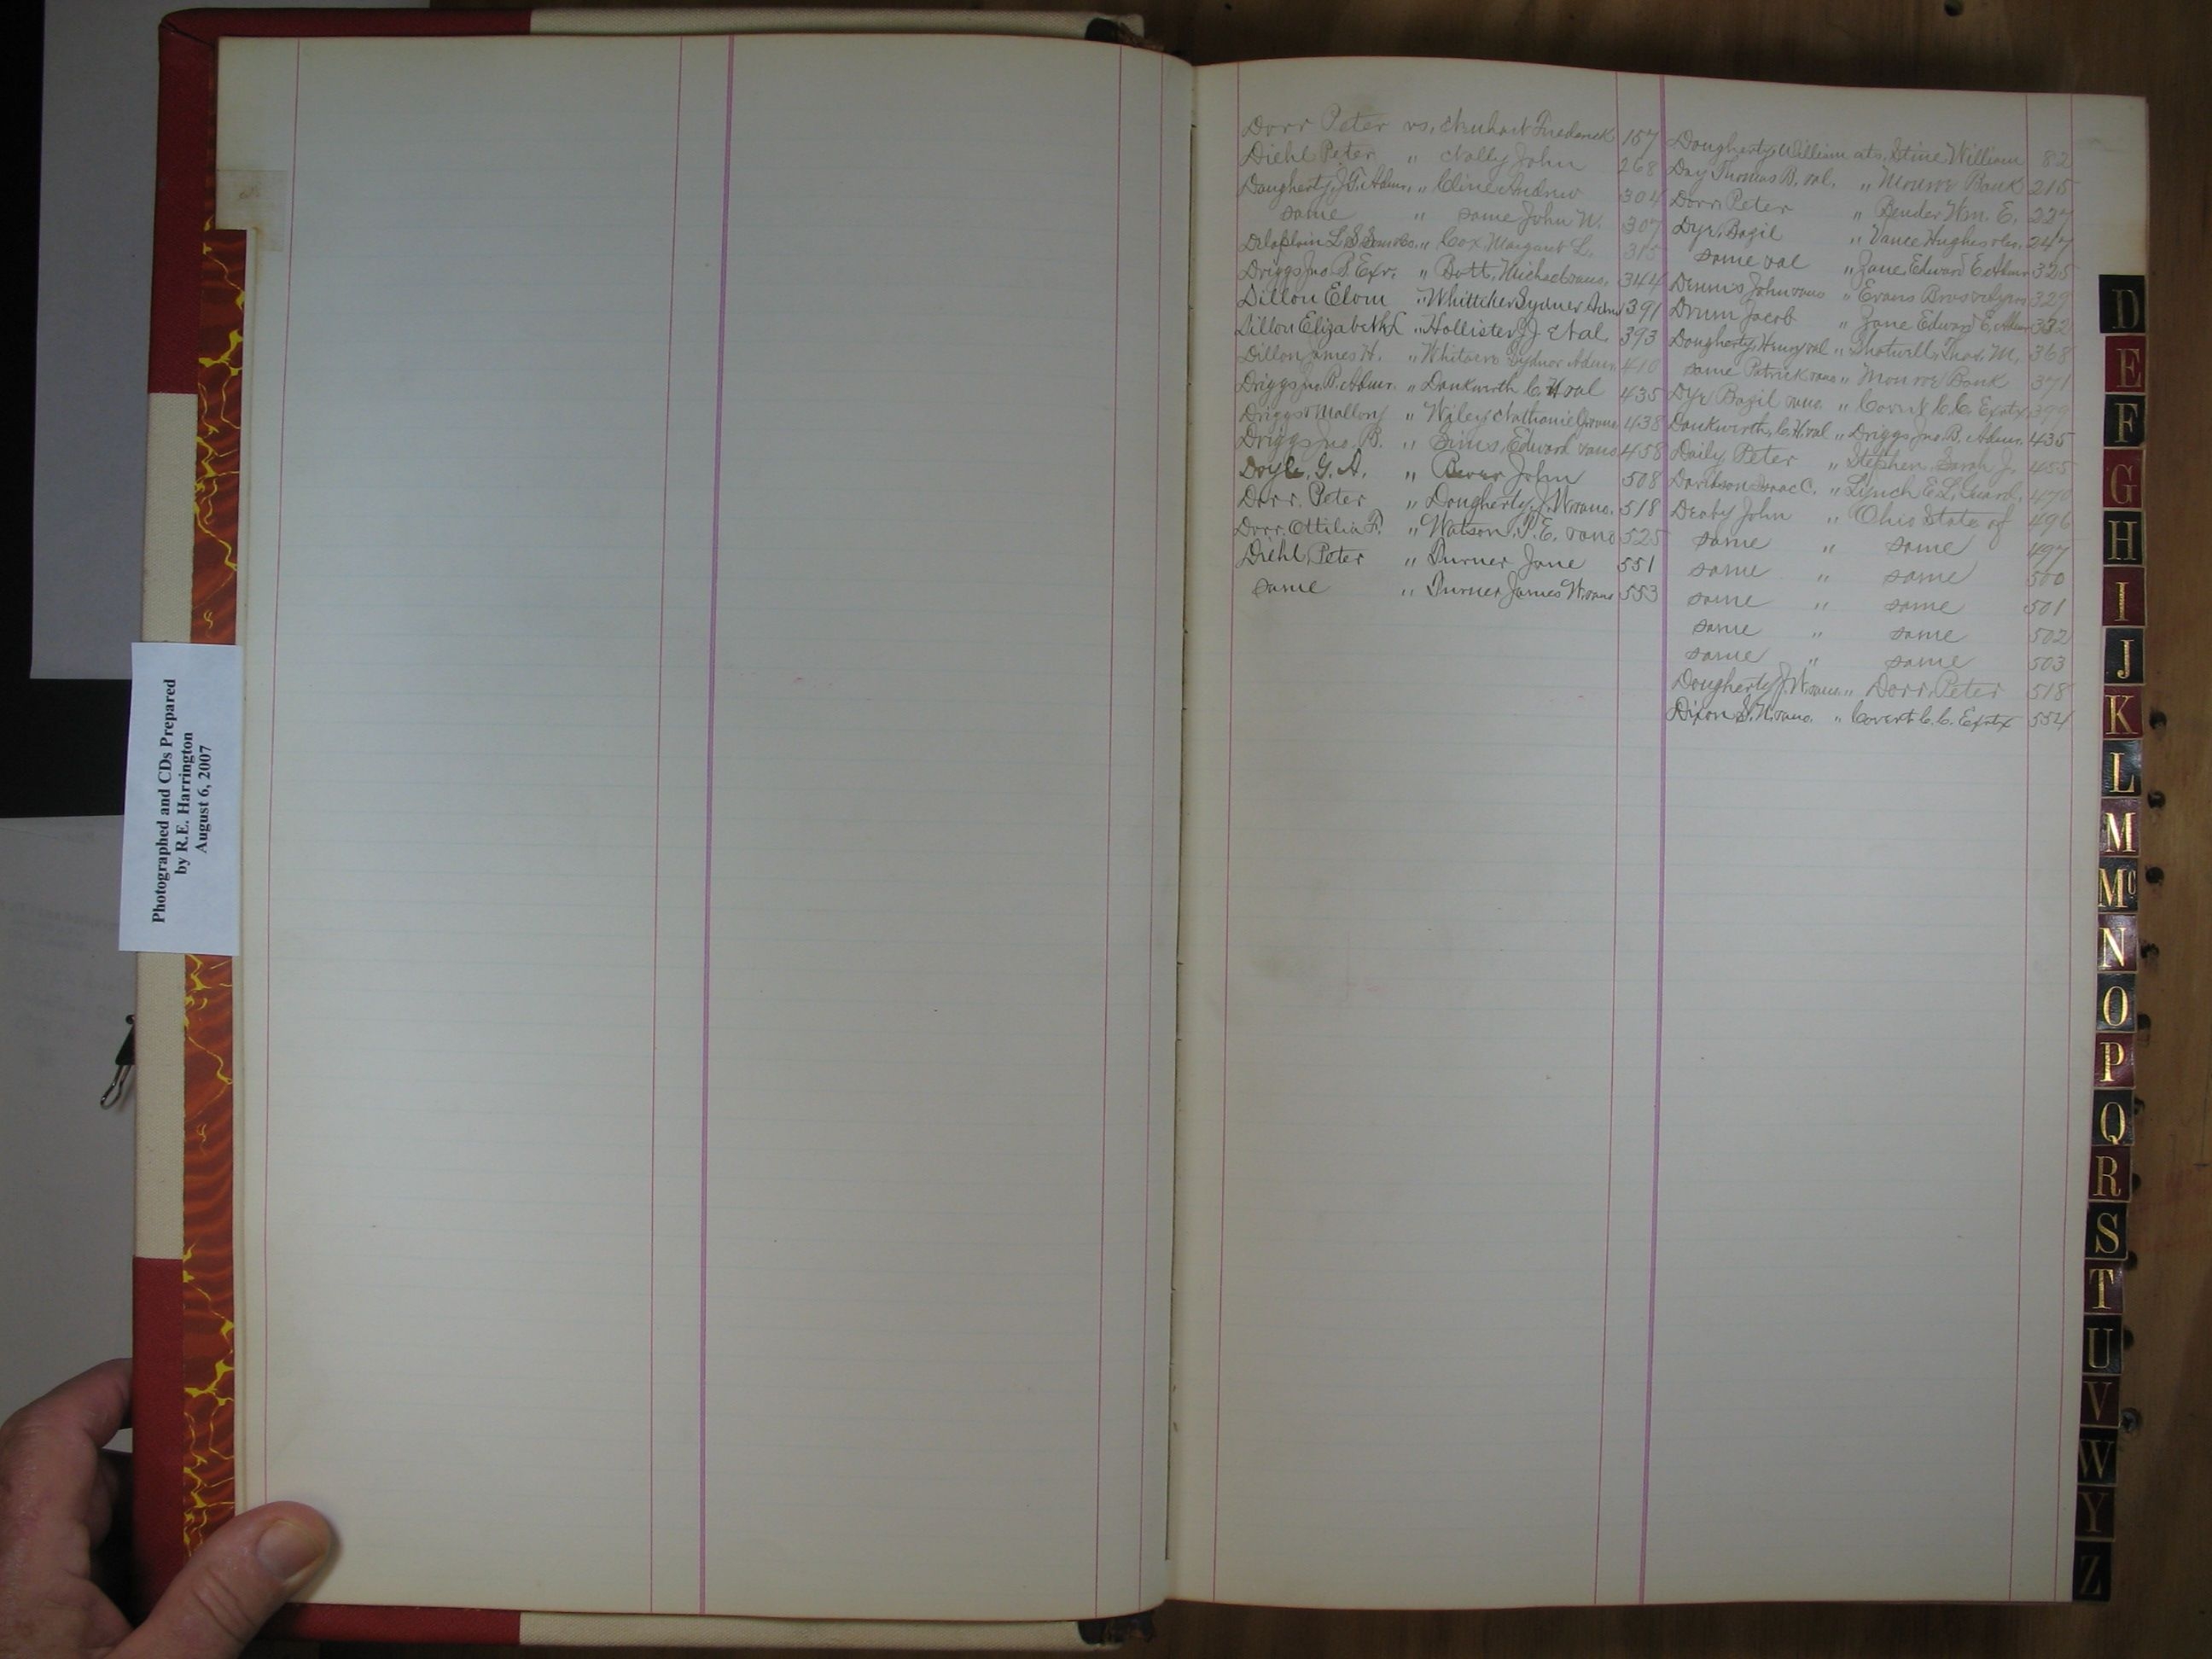 Photographed and CDs Prepared
by R.E. Harrington
August 6, 2007
Dorr Peter vs. Frederick 157
Diehl Peter " Nally John 268
Dougherty, J.T. Admr. " Cline Andrew 304
same " same John W. 307
Delaplain L.S. " Cox, Margaret L. 315
Driggs Jno. B. Exr. " Bott, Michael 344
Dillon Elom " Whittcher Sydner Adm 391
Dillon Elizabeth L " Hollister J J et al. 393
Dillon James H. " Whitacre Sydnor Admr. 410
Driggs Jno. B. Admr. " Dankwerth C. H 435
Driggs & Mallory " Wiley Nathaniel 438
Driggs Jno. B. " Sims, Edward 458
Doyle, G. A. " John 508
Dorr. Peter " Dougherty, J. W. 518
Dorr, Ottilia F. " Watson, T. E. 525
Diehl Peter " Turner Jane 551
same " Turner James W. 553
Dougherty, William ats. Stine William 82
Day Thomas B. " Monroe Bank 215
Dorr Peter " Bender Wm. E. 227
Dye, Bazil " Vance Hughes 247
same " Jane, Edward E. Admr 325
Dennis John " Evans Bros 329
Drum Jacob " Jane Edward E. Admr 332
Dougherty, Henry " Thos. M. 368
same Patrick " Monroe Bank 371
Dye Bazil " C. C. Exrtx 399
Dankwerth, C. H. " Driggs Jno. B. Admr. 435
Daily Peter " Stephen, Sarah J. 455
Davidson Isaac C. " Lynch E. L. Guard. 470
Derby John " Ohio State of 496
same " same 497
same " same 500
same " same 501
same " same 502
same " same 503
Dougherty J. W. " Dorr, Peter 518
Dixon S. N. " Covert C. C. Exrtx 554
D
E
F
G
H
I
J
K
L
M
Mc
N
O
P
Q
R
S
T
U
V
W
Y
Z